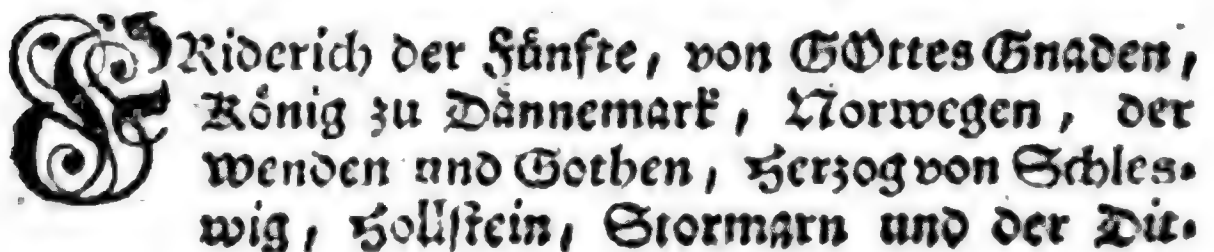 FRiderich der Fünfte, von GOttes Gnaden,
König zu Dännemark, Norwegen, der
Wenden und Gothen, Herzog von Schles-
wig, Hollstein, Stormarn und der Dit-